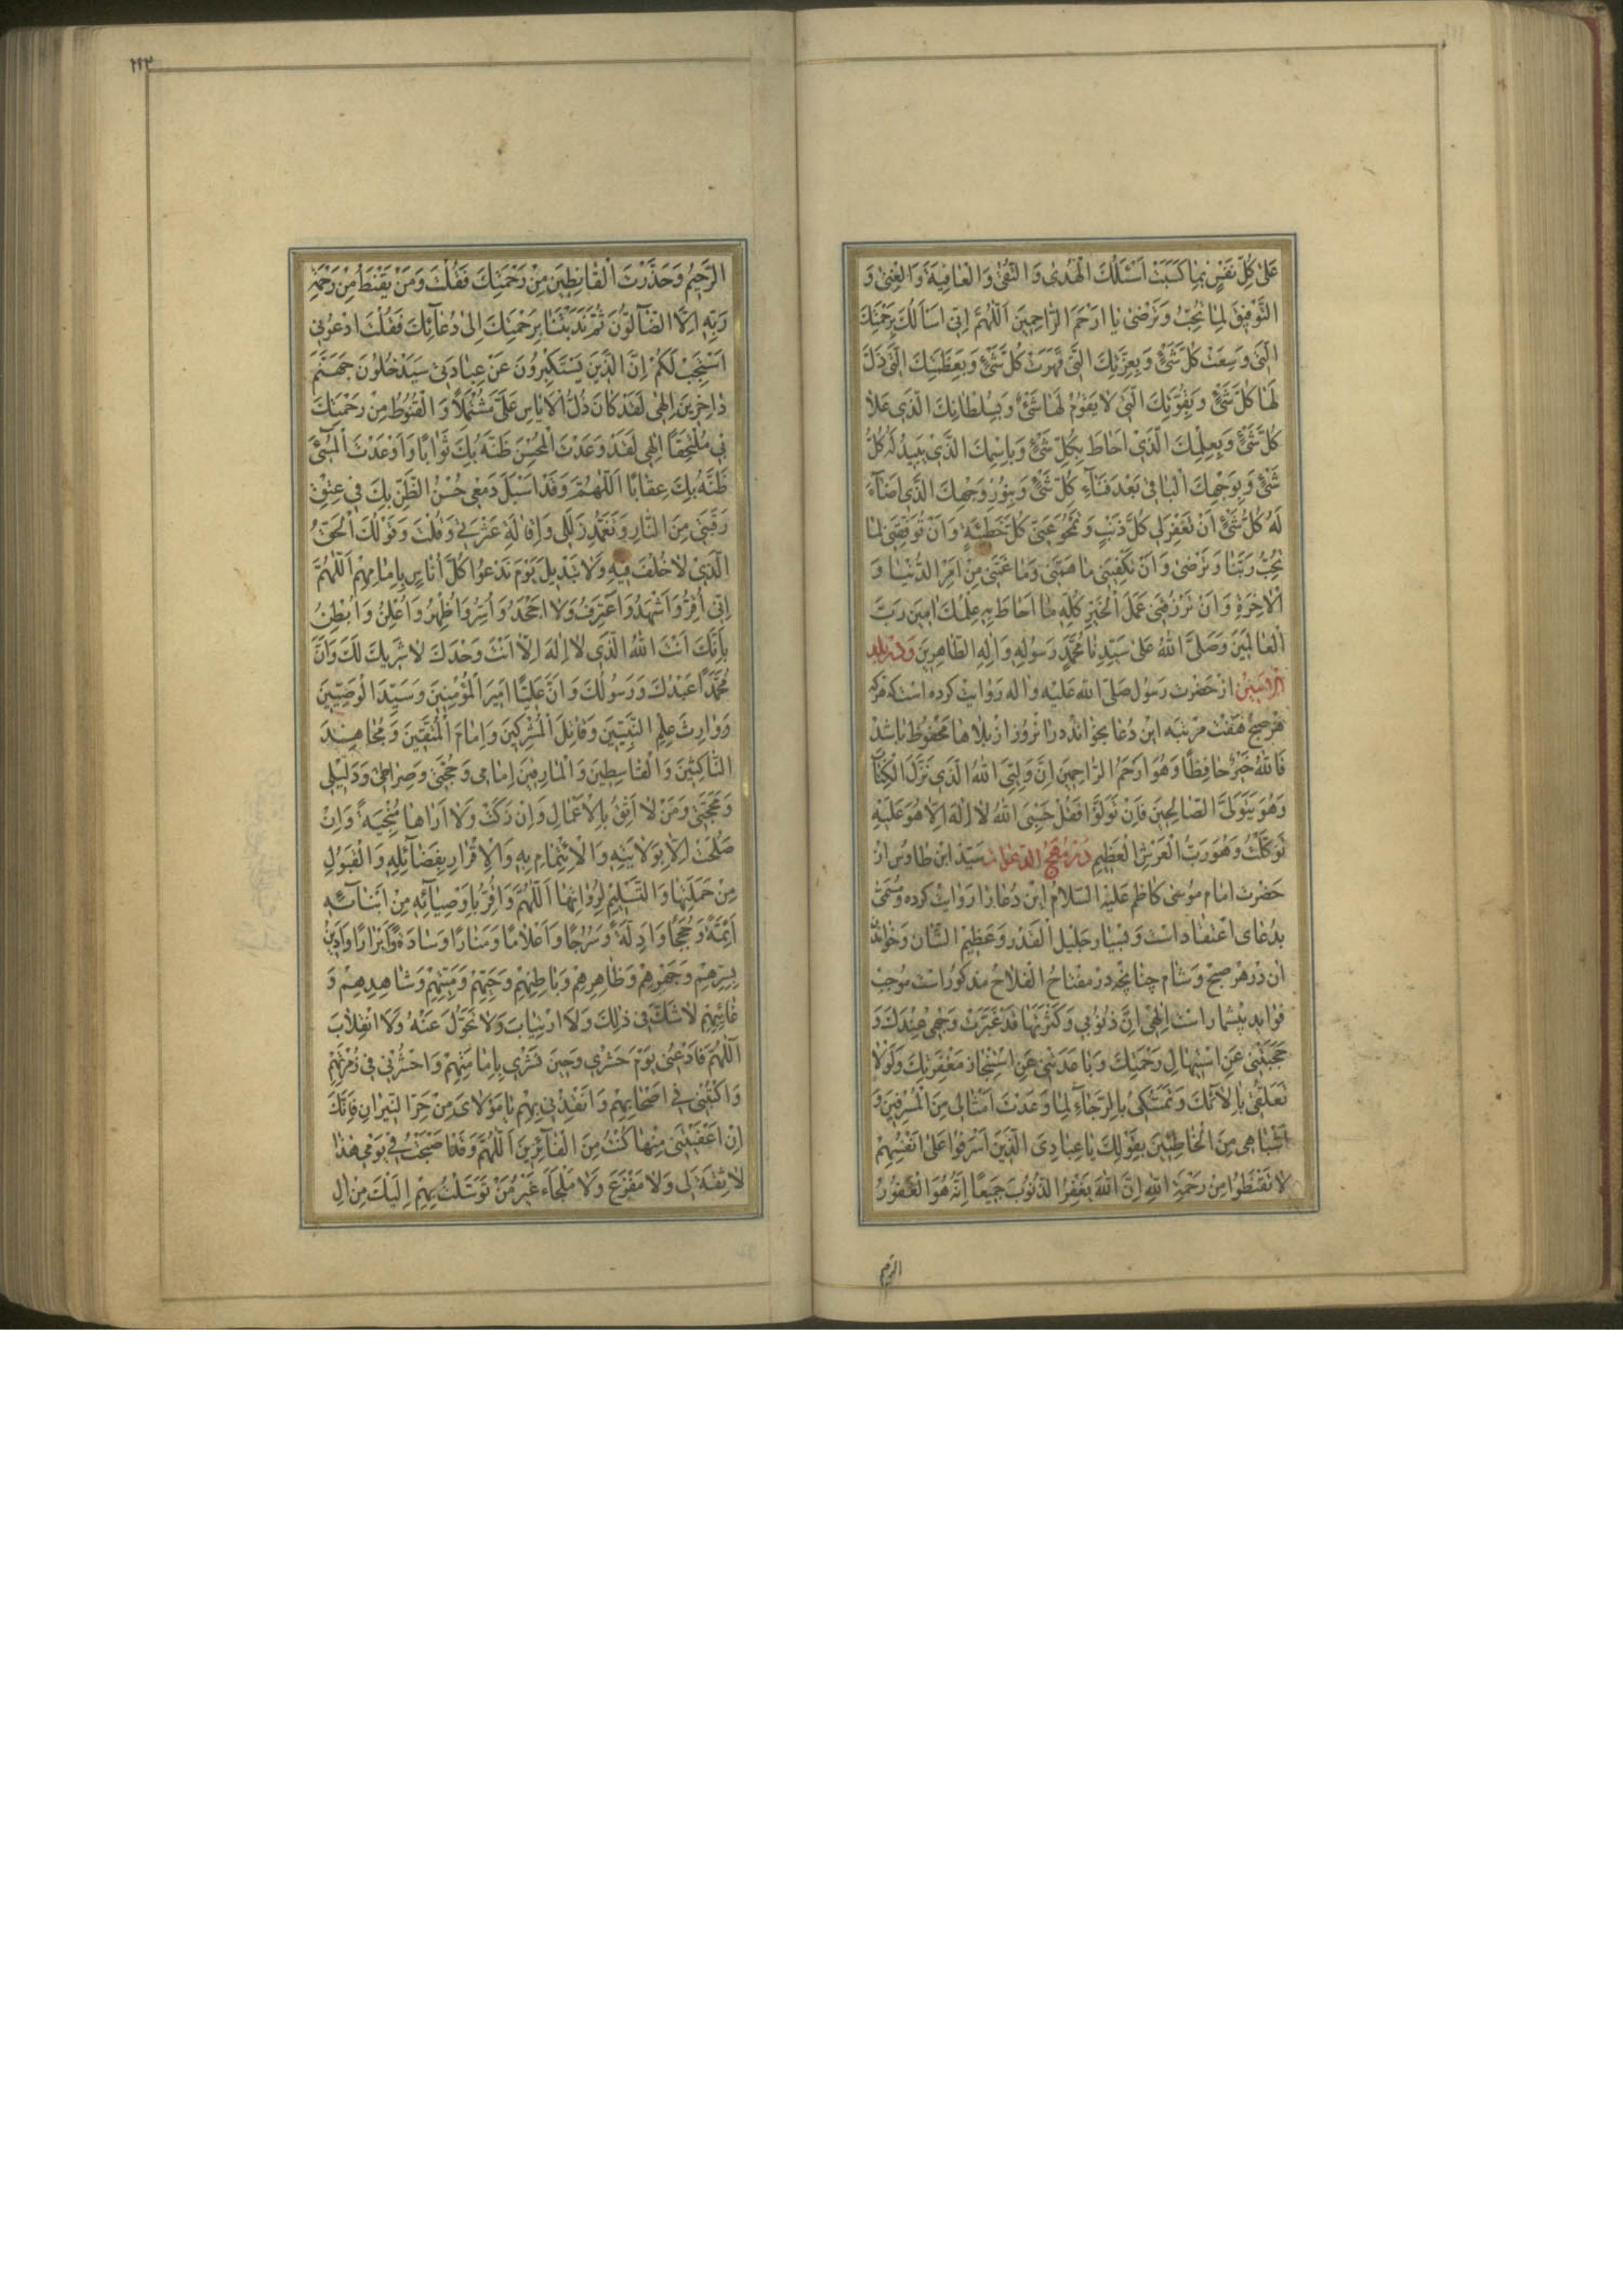 عَلىٰ كُلِّ نَفْسٍ بِمٰا كَسَبَتْ اَسْئَلُكَ الْهُدىٰ وَ التُّقىٰ وَ الْعٰافِيَةَ وَ الْغِنىٰ وَ
التَّوْفيقَ لِمٰا تُحِبُّ وَتَرْضىٰ يٰا اَرْحَمَ الرّٰاحِمينَ اَللّٰهُمَّ اِنّى اَسْاَلُكَ بِرَحْمَتِكَ
الَّتى وَسِعَتْ كُلَّ شَىْءٍ وَ بِعِزَّتِكَ الَّتى قَهَرَتْ كُلَّ شَىْءٍ وَ بِعَظَمَتِكَ الَّتى ذَلَّ
لَهٰا كُلُّ شَىْءٍ وَ بِقُوَّتِكَ الَّتى لا يَقُومُ لَهٰا شَىْءٌ وَ بِسُلْطٰانِكَ الَّذى عَلاٰ
كُلَّ شَىْءٍ وَ بِعِلْمِكَ الَّذى اَحٰاطَ بِكُلِّ شَىْءٍ وَ بِاسْمِكَ الَّذى يَبيدُ لَهُ كُلُّ
شَىْءٍ وَ بِوَجْهِكَ الْبٰاقى بَعْدَ فَنٰاءِ كُلِّ شَىْءٍ وَ بِنُورِ وَجْهِكَ الَّذى اَضٰاءَ
لَهُ كُلُّ شَىْءٍ اَنْ تَغْفِرَ لى كُلَّ ذَنْبٍ وَ تَمْحُوَ عَنّى كُلَّ خَطيئَةٍ وَ اَنْ تُوَفِّقَنى لِمٰا
تُحِبُّ رَبَّنٰا وَ تَرْضىٰ وَ اَنْ تَكْفِيَنى مٰا هَمَّنى وَمٰا غَمَّنى مِنْ اَمْرِ الدُّنْيٰا وَ
الْاٰخِرَةِ وَ اَنْ تَرْزُقَنى عَمَلَ الْخَيْرِ كُلِّهِ مٰا اَحٰاطَ بِهِ عِلْمُكَ اٰمينَ رَبَّ
الْعٰالَمينَ وَصَلَّى اللّٰهُ عَلىٰ سَيِّدِنٰا مُحَمَّدٍ رَسُولِهِ وَ اٰلِهِ الطّٰاهِرينَ وَ در بلد
الامين از حضرت رسول صلى الله عليه و اله روايت كرده است كه هر كه
هر صبح هفت مرتبه اين دعا بخواند در ان روز از بلاها محفوظ باشد
فَاللّٰهُ خَيْرٌ حٰافِظًا وَ هُوَ اَرْحَمُ الرّٰاحِمينَ اِنَّ وَلِيِّىَ اللّٰهُ الَّذى نَزَّلَ الْكِتٰابَ
وَ هُوَ يَتَوَلَّى الصّٰالِحينَ فَاِنْ تَوَلَّوْا فَقُلْ حَسْبِىَ اللّٰهُ لا اِلٰهَ اِلّا هُوَ عَلَيْهِ
تَوَكَّلْتُ وَ هُوَ رَبُّ الْعَرْشِ الْعَظيمِ در مهج الدعوات سيد ابن طاوس از
حضرت امام موسى كاظم عليه السلام اين دعا را روايت كرده و مسمى
بدعاى اعتقاد است و بسيار جليل القدر و عظيم الشان و خواندن
ان در هر صبح و شام چنانچه در مفتاح الفلاح مذكور است موجب
فوايد بيشمار است اِلٰهى اِنَّ ذُنُوبى وَ كَثْرَتَهٰا قَدْ غَبَّرَتْ وَجْهى عِنْدَكَ وَ
حَجَبَتْنى عَنِ اسْتيهٰالِ رَحْمَتِكَ وَ بٰاعَدَتْنى عَنِ اسْتِنْجٰازِ مَغْفِرَتِكَ وَ لَوْلاٰ
تَعَلُّقى بِاٰلاٰئِكَ وَ تَمَسُّكى بِالرَّجٰاءِ لِمٰا وَعَدْتَ اَمْثٰالى مِنَ الْمُسْرِفينَ وَ
اَشْبٰاهى مِنَ الْخٰاطِئينَ بِقَوْلِكَ يٰا عِبٰادِىَ الَّذينَ اَسْرَفُوا عَلىٰ اَنْفُسِهِمْ
لاٰ تَقْنَطُوا مِنْ رَحْمَةِ اللّٰهِ اِنَّ اللّٰهَ يَغْفِرُ الذُّنُوبَ جَميعًا اِنَّهُ هُوَ الْغَفُورُ
الرحيم
٢١٣
الرَّحيمُ وَ حَذَّرْتَ الْقٰانِطينَ مِنْ رَحْمَتِكَ فَقُلْتَ وَ مَنْ يَقْنَطُ مِنْ رَحْمَةِ
رَبِّهِ اِلَّا الضّٰالُّونَ ثُمَّ نَدَبْتَنٰا بِرَحْمَتِكَ اِلىٰ دُعٰائِكَ فَقُلْتَ ادْعُونى
اَسْتَجِبْ لَكُمْ اِنَّ الَّذينَ يَسْتَكْبِرُونَ عَنْ عِبٰادَتى سَيَدْخُلُونَ جَهَنَّمَ
دٰاخِرينَ اِلٰهى لَقَدْ كٰانَ ذُلُّ الْاِيٰاسِ عَلَىَّ مُشْتَمِلاً وَ الْقُنُوطُ مِنْ رَحْمَتِكَ
بى مُلْتَحِفًا اِلٰهى لَقَدْ وَعَدْتَ الْمُحْسِنَ ظَنَّهُ بِكَ ثَوٰابًا وَ اَوْعَدْتَ الْمُسىءَ
ظَنَّهُ بِكَ عِقٰابًا اَللّٰهُمَّ وَ قَدْ اَسْبَلَ دَمْعى حُسْنُ الظَّنِّ بِكَ فى عِتْقِ
رَقَبَتى مِنَ النّٰارِ وَ تَغَمُّدِ زَلَلى وَ اِقٰالَةِ عَثْرَتى وَ قُلْتَ وَ قَوْلُكَ الْحَقُّ
الَّذى لاٰ خُلْفَ فيهِ وَ لاٰ تَبْديلَ يَوْمَ نَدْعُوا كُلَّ اُنٰاسٍ بِاِمٰامِهِمْ اَللّٰهُمَّ
اِنّى اُقِرُّ وَ اَشْهَدُ وَ اَعْتَرِفُ وَ لاٰ اَجْحَدُ وَ اُسِرُّ وَ اُظْهِرُ وَ اُعْلِنُ وَ اُبْطِنُ
بِاَنَّكَ اَنْتَ اللّٰهُ الَّذى لاٰ اِلٰهَ اِلّٰا اَنْتَ وَحْدَكَ لاٰ شَريكَ لَكَ وَ اَنَّ
مُحَمَّدًا عَبْدُكَ وَ رَسُولُكَ وَ اَنَّ عَلِيًّا اَميرَ الْمُؤْمِنينَ وَ سَيِّدَ الْوَصِيّينَ
وَ وٰارِثَ عِلْمِ النَّبِيّينَ وَ قٰاتِلَ الْمُشْرِكينَ وَ اِمٰامَ الْمُتَّقينَ وَ مُجٰاهِدَ
النّٰاكِثينَ وَ الْقٰاسِطينَ وَ الْمٰارِقينَ اِمٰامى وَ حُجَّتى وَ صِرٰاطى وَ دَليلى
وَ مَحَجَّتى وَ مَنْ لاٰ اَثِقُ بِالْاَعْمٰالِ وَ اِنْ زَكَتْ وَ لاٰ اَرٰاهٰا مُنْجِيَةً وَ اِنْ
صَلُحَتْ اِلّٰا بِوَلاٰيَتِهِ وَ الْاِئْتِمٰامِ بِهِ وَ الْاِقْرٰارِ بِفَضٰائِلِهِ وَ الْقَبُولِ
مِنْ حَمَلَتِهٰا وَ التَّسْليمِ لِرُوٰاتِهٰا اَللّٰهُمَّ وَ اُقِرُّ بِاَوْصِيٰائِهِ مِنْ اَبْنٰائِهِ
اَئِمَّةً وَ حُجَجًا وَ اَدِلَّةً وَ سُرُجًا وَ اَعْلاٰمًا وَ مَنٰارًا وَ سٰادَةً وَ اَبْرٰارًا وَ اَدينُ
بِسِرِّهِمْ وَ جَهْرِهِمْ وَ ظٰاهِرِهِمْ وَ بٰاطِنِهِمْ وَ حَيِّهِمْ وَ مَيِّتِهِمْ وَ شٰاهِدِهِمْ وَ
غٰائِبِهِمْ لاٰ شَكَّ فى ذٰلِكَ وَ لاَ ارْتِيٰابَ وَ لاٰ تَحَوُّلَ عَنْهُ وَ لاَ انْقِلاٰبَ
اَللّٰهُمَّ فَادْعُنى يَوْمَ حَشْرى وَ حينَ نَشْرى بِاِمٰامَتِهِمْ وَ احْشُرْنى فى زُمْرَتِهِمْ
وَ اكْتُبْنى فى اَصْحٰابِهِمْ وَ اَنْقِذْنى بِهِمْ يٰا مَوْلاٰىَ مِنْ حَرِّ النّيرٰانِ فَاِنَّكَ
اِنْ اَعْفَيْتَنى مِنْهٰا كُنْتُ مِنَ الْفٰائِزينَ اَللّٰهُمَّ وَ قَدْ اَصْبَحْتُ فى يَوْمى هٰذٰا
لاٰ ثِقَةَ لى وَ لاٰ مَفْزَعَ وَ لاٰ مَلْجَاءَ غَيْرُ مَنْ تَوَسَّلْتُ بِهِمْ اِلَيْكَ مِنْ اٰلِ